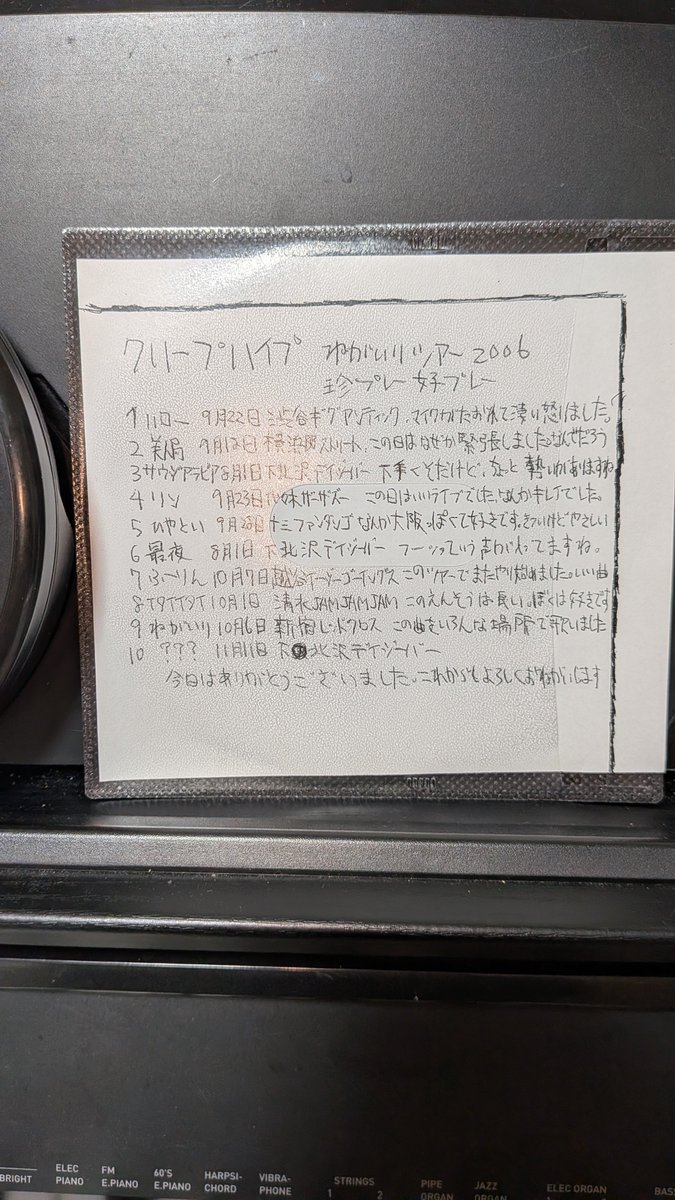 クリープハイプ ねがいりツアー2006
珍プレー好プレー
1 ハロー 9月22日 渋谷ギグアンティック、マイクがたおれて凄い怒りました。
2 美局 9月12日 横浜 この日はなぜか緊張しました。なんでだろう
3 サウジアラビア 8月1日 下北沢デイジーバー 下手くそだけど、勢いがありますね
4 リン 9月23日 この日はいいライブでした。なんかキレイでした。
5 ひやとい 9月28日 十三ファンダンゴ なんか大阪っぽくて好きです。きついけどやさしい
6 最夜 8月1日 下北沢デイジーバー フーッっていう声が入ってますね。
7 ふーりん 10月7日 越谷イージーゴーイングス このツアーでまたやり始めました。いい曲
8 イタイイタイ 10月1日 清水JAMJAMJAM このえんそうは長い。ぼくは好きです
9 ねがいり 10月6日 新宿レッドクロス この曲をいろんな場所で歌いました
10 ??? 11月11日 下北沢デイジーバー
今日はありがとうございました。これからもよろしくおねがいします
BRIGHT
ELEC PIANO
FM E.PIANO
60'S E.PIANO
HARPSI-CHORD
VIBRA-PHONE
STRINGS 1 2
PIPE ORGAN
JAZZ ORGAN
ELEC ORGAN 1